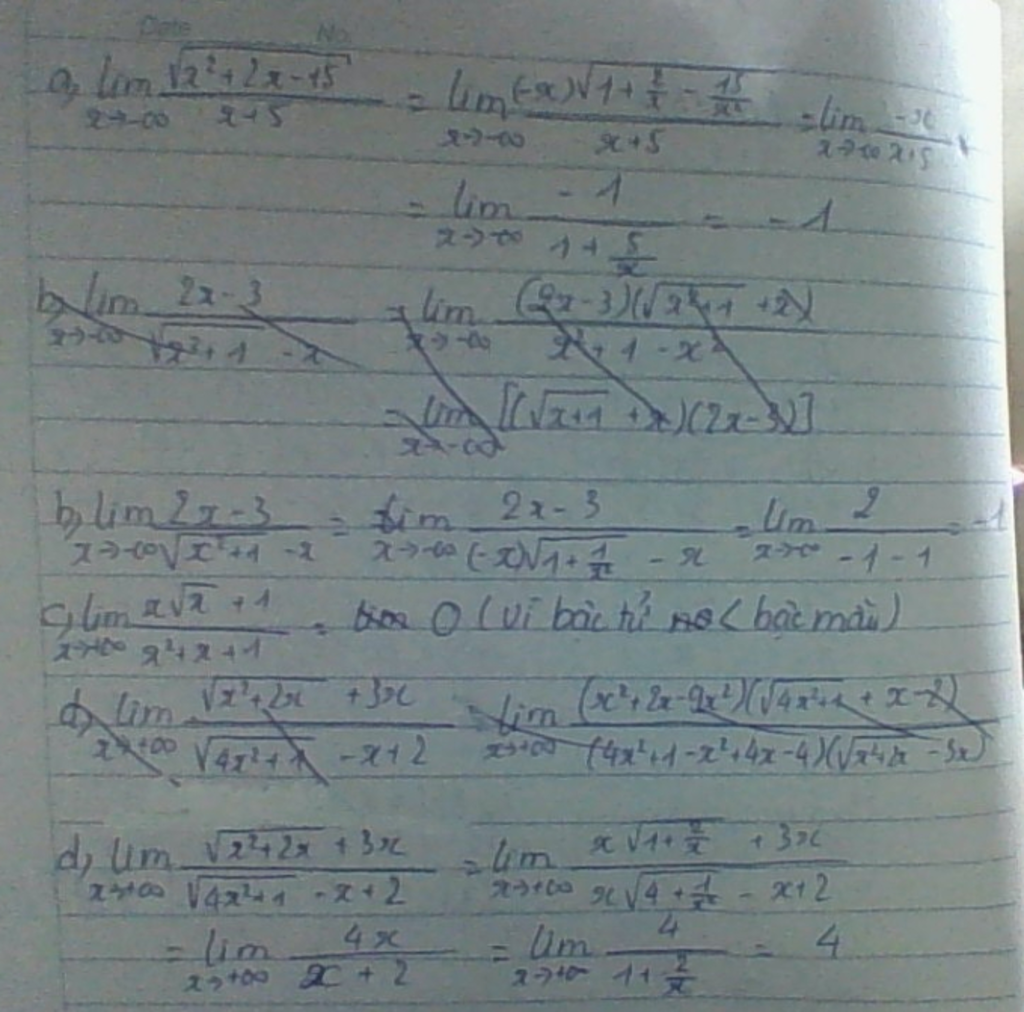 Date No.
a, lim x→-∞ √(x²+2x-15) / (x+5) = lim x→-∞ (-x)√(1+2/x-15/x²) / (x+5) = lim x→-∞ -x/(x+5)
= lim x→-∞ -1/(1+5/x) = -1
b, lim x→-∞ (2x-3)/(√(x²+1) -x) = lim x→-∞ (2x-3)(√(x²+1) +x) / (x²+1-x²)
= lim x→-∞ [(√(x+1) +x)(2x-3)]
b, lim x→-∞ (2x-3)/(√(x²+1) -x) = lim x→-∞ (2x-3)/((-x)√(1+1/x²) -x) = lim x→-∞ 2/(-1-1) = -1
c, lim x→+∞ (x√x +1)/(x²+x+1) = 0 (vì bậc tử < bậc mẫu)
d, lim x→+∞ (√(x²+2x) +3x)/(√(4x²+1) -x+2) = lim x→+∞ (x²+2x-9x²)(√(4x²+1) +x-2) / (4x²+1-x²+4x-4)(√(x²+2x) -3x)
d, lim x→+∞ (√(x²+2x) +3x)/(√(4x²+1) -x+2) = lim x→+∞ (x√(1+2/x) +3x)/(x√(4+1/x²) -x+2)
= lim x→+∞ 4x/(x+2) = lim x→+∞ 4/(1+2/x) = 4